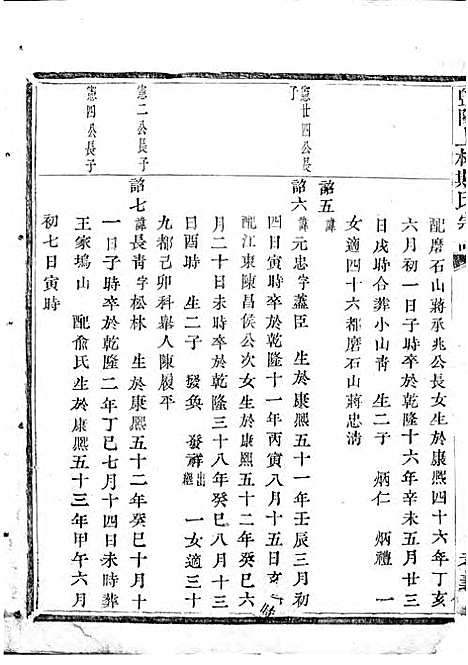 配磨石山蔣承兆公長女生於康熙四十六年丁亥
六月初一日子時卒於乾隆十六年辛未五月廿三
日戌時合葬小山靑 生二子 炳仁 炳禮 一
女適四十六都磨石山蔣忠清
詔五諱
憲廿四公長子
詔六諱元忠字藎臣 生於康熙五十一年壬辰三月初
四日寅時卒於乾隆十一年丙寅八月十五日亥時
配江東陳昌侯公次女生於康熙五十二年癸巳六
月二十日未時卒於乾隆三十八年癸巳八月十三
日酉時 生二子 發奐 發祥出繼 一女適三十
九都己卯科舉人陳履平
憲二公長子
詔七諱長青字松林 生於康熙五十二年癸巳十月十
一日子時卒於乾隆二年丁巳七月十四日未時葬
憲四公長子
王家塢山 配俞氏生於康熙五十三年甲午六月
初七日寅時